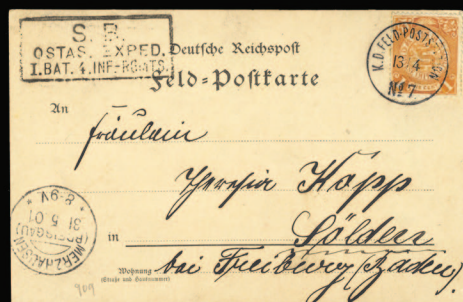 S. B.
OSTAS. EXPED.
I. BAT. 4. INF-RGMTS.
Deutsche Reichspost
Feld=Postkarte
K.D. FELD-POSTSTATION
13/4
No 7
An
Fräulein
Theresia Kopp
in Sölden
Wohnung
(Straße und Hausnummer)
bei Freiburg (Baden).
MERZHAUSEN
(BREISGAU)
31 5 01
8-9V
909